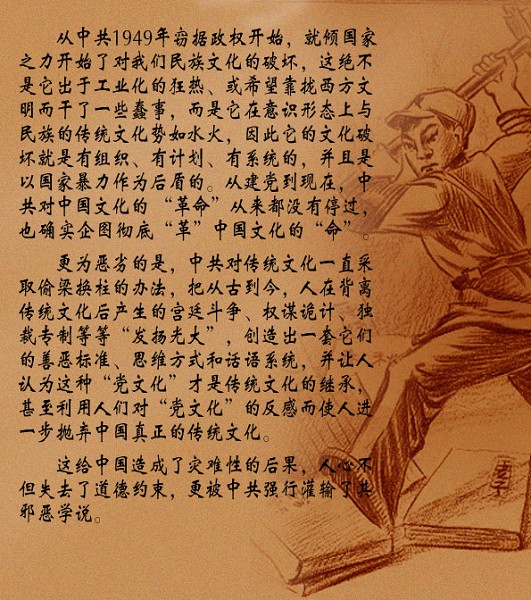 从中共1949年窃据政权开始，就倾国家
之力开始了对我们民族文化的破坏，这绝不
是它出于工业化的狂热、或希望靠拢西方文
明而干了一些蠢事，而是它在意识形态上与
民族的传统文化势如水火，因此它的文化破
坏就是有组织、有计划、有系统的，并且是
以国家暴力作为后盾的。从建党到现在，中
共对中国文化的“革命”从来都没有停过，
也确实企图彻底“革”中国文化的“命”。
更为恶劣的是，中共对传统文化一直采
取偷梁换柱的办法，把从古到今，人在背离
传统文化后产生的宫廷斗争、权谋诡计、独
裁专制等等“发扬光大”，创造出一套它们
的善恶标准、思维方式和话语系统，并让人
认为这种“党文化”才是传统文化的继承，
甚至利用人们对“党文化”的反感而使人进
一步抛弃中国真正的传统文化。
这给中国造成了灾难性的后果，人心不
但失去了道德约束，更被中共强行灌输了其
邪恶学说。
老子